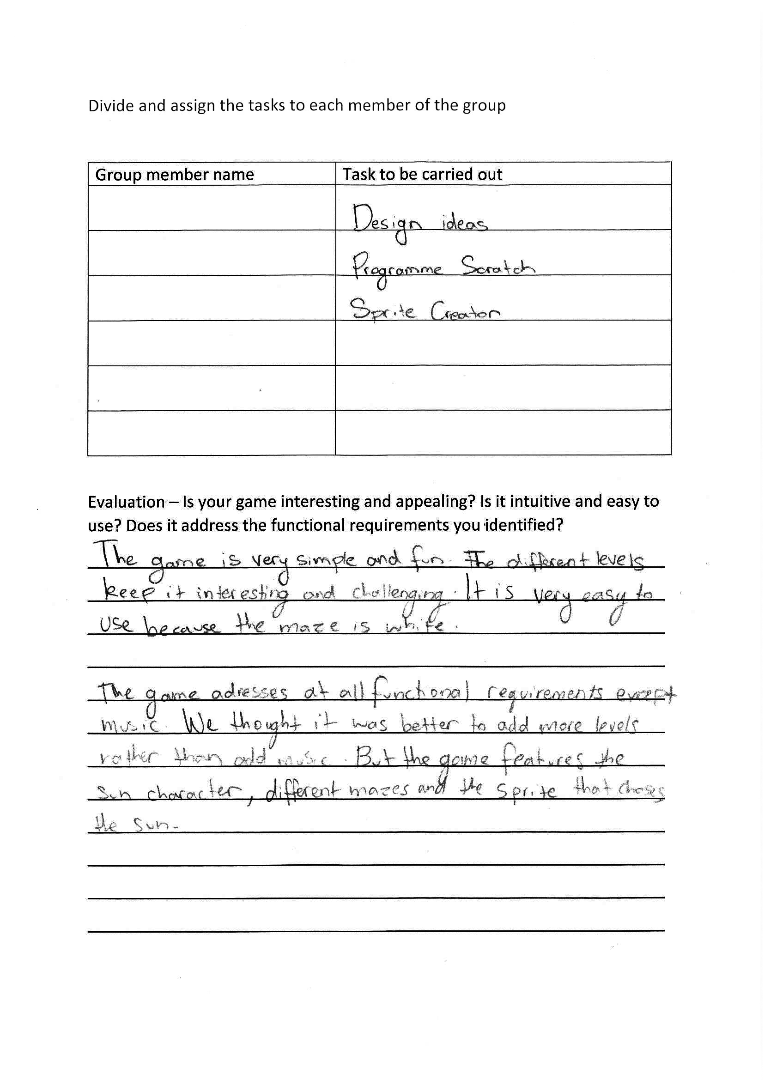 Divide and assign the tasks to each member of the group
Group member name Task to be carried out
Design ideas
Programme Scratch
Sprite Creator
Evaluation – Is your game interesting and appealing? Is it intuitive and easy to
use? Does it address the functional requirements you identified?
The game is very simple and fun. The different levels
keep it interesting and challenging. It is very easy to
use because the maze is white.
The game adresses at all functional requirements except
music. We thought it was better to add more levels
rather than add music. But the game features the
Sun character, different mazes and the Sprite that chases
the Sun.